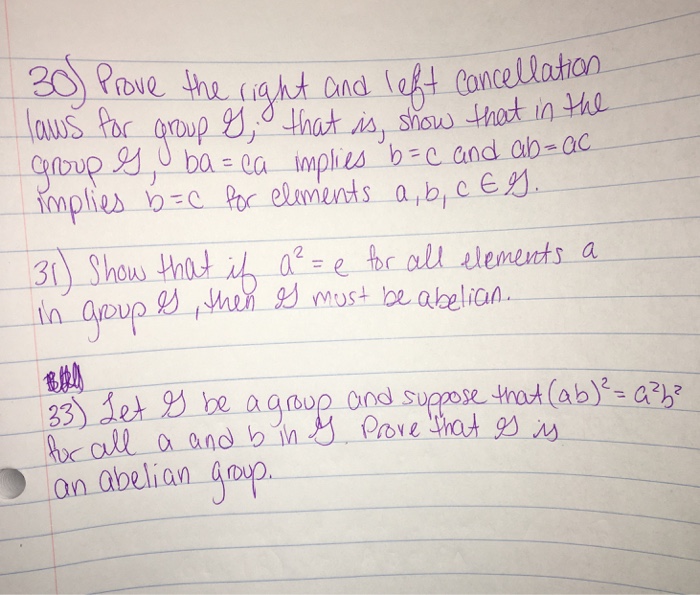 30) Prove the right and left cancellation
laws for group G; that is, show that in the
group G, ba = ca implies b=c and ab=ac
implies b=c for elements a, b, c ∈ G.
31) Show that if a² = e for all elements a
in group G, then G must be abelian.
33) Let G be a group and suppose that (ab)² = a²b²
for all a and b in G. Prove that G is
an abelian group.